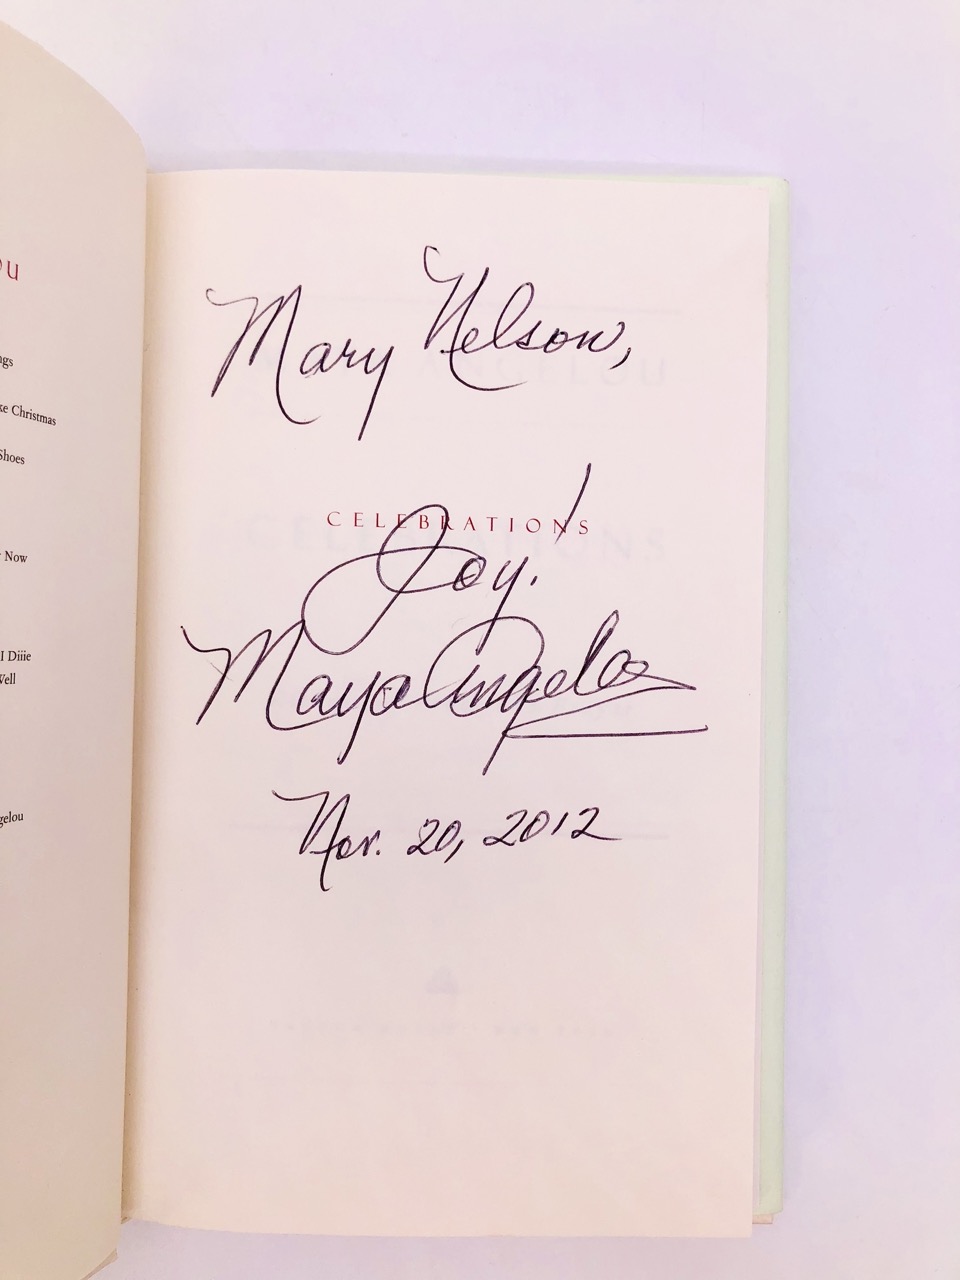 ou
ngs
ke Christmas
Shoes
Now
I Diiie
Well
gelou
Mary Nelson,
CELEBRATIONS
Joy!
Maya Angelou
Nov. 20, 2012
ANGELOU
CELEBRATIONS